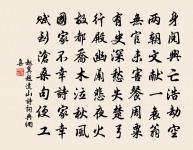 身阅兴亡浩劫空
两朝文献一衰翁
无官未害餐周粟
有史深愁失楚弓
行殿幽兰悲夜火
故都乔木泣秋风
国家不幸诗家幸
赋到沧桑句便工